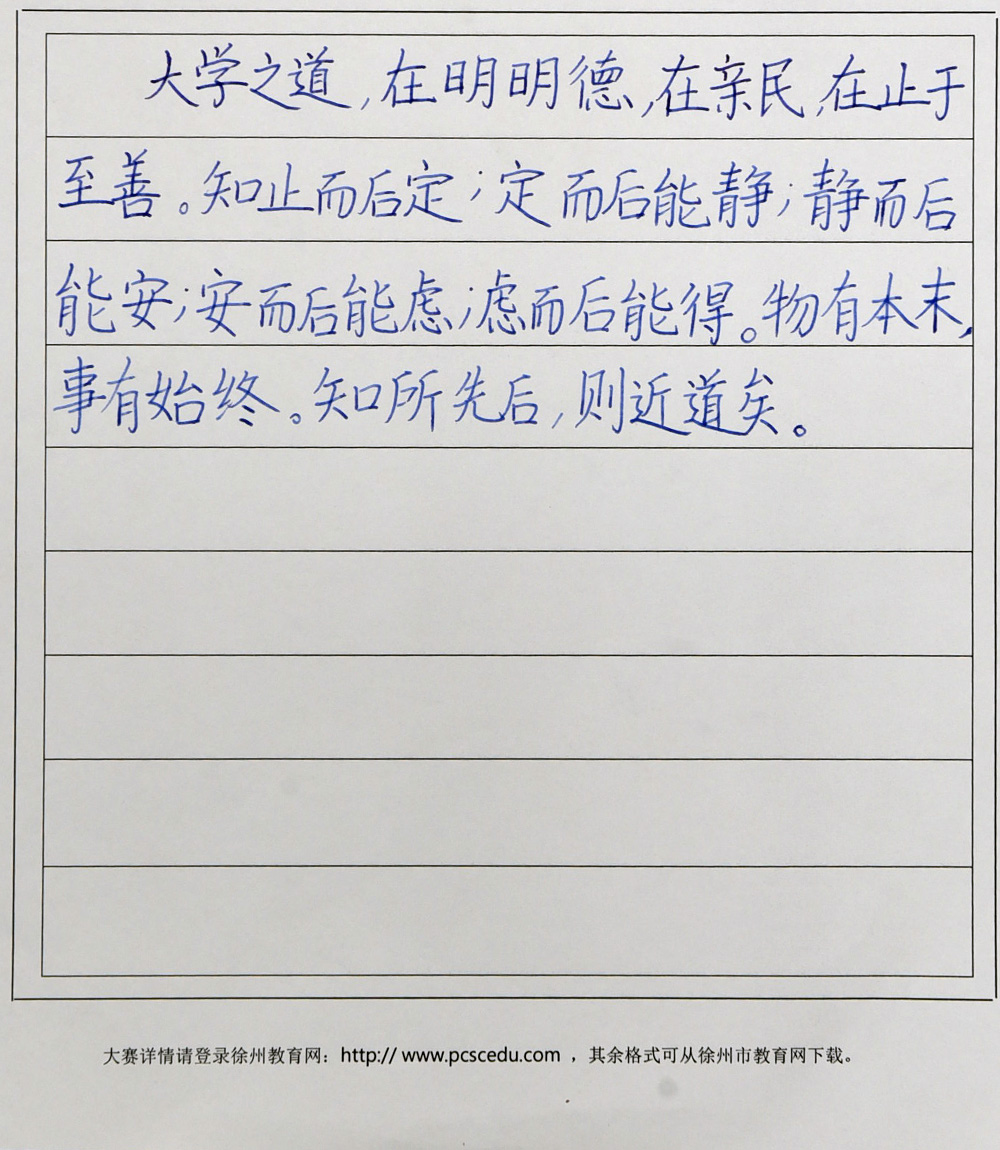 大学之道,在明明德,在亲民,在止于
至善。知止而后定;定而后能静;静而后
能安;安而后能虑;虑而后能得。物有本末,
事有始终。知所先后,则近道矣。
大赛详情请登录徐州教育网：http:// www.pcscedu.com ，其余格式可从徐州市教育网下载。